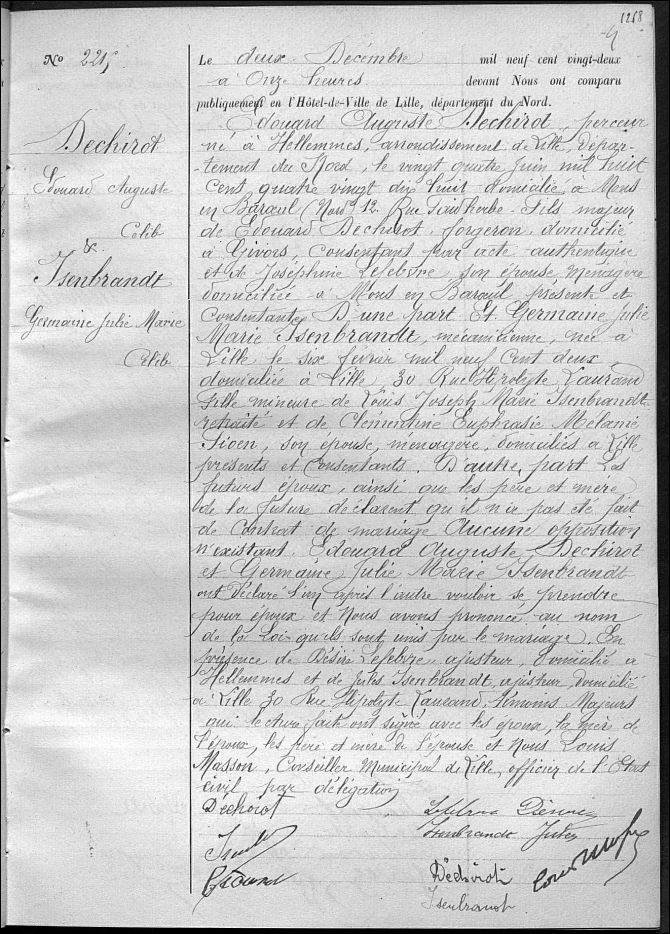 1268
9
N° 225
Dechirot
Edouard Auguste
Célib
&
Isenbrandt
Germaine Julie Marie
Célib
Le deux Décembre mil neuf cent vingt-deux
à Onze heures devant Nous ont comparu
publiquement en l'Hôtel-de-Ville de Lille, département du Nord.
Edouard Auguste Dechirot, perceur
né à Hellemmes, arrondissement de Lille, Dépar-
tement du Nord, le vingt quatre Juin mil huit
Cent quatre vingt dix huit domicilié à Mons
en Baroeul (Nord) 12 Rue Faidherbe. Fils majeur
de Edouard Dechirot, forgeron, domicilié
à Givors, consentant par acte authentique
et de Joséphine Lefebvre son épouse ménagère
domiciliée à Mons en Baroeul, présente et
Consentante, D'une part Et Germaine Julie
Marie Isenbrandt, mécanicienne, née à
Lille le six février mil neuf Cent deux
domiciliée à Lille, 30 Rue Hipolyte Laurand
fille mineure de Louis Joseph Marie Isenbrandt
retraité et de Clémentine Euphrasie Mélanie
Sioen, son épouse, ménagère, domiciliés à Lille
présents et Consentants. D'autre part Les
futurs époux, ainsi que les père et mère
de la future déclarent qu'il n'a pas été fait
de Contrat de mariage Aucune opposition
n'existant. Edouard Auguste Dechirot
et Germaine Julie Marie Isenbrandt
ont déclaré l'un après l'autre vouloir se prendre
pour époux et Nous avons prononcé au nom
de la Loi qu'ils sont unis par le mariage, En
présence de Désiré Lefebvre ajusteur, domicilié à
Hellemmes et de Jules Isenbrandt, ajusteur, domicilié
à Lille 30 Rue Hipolyte Laurand, témoins Majeurs
qui lecture faite ont signé avec les époux, la mère de
l'époux, les père et mère de l'épouse et Nous Louis
Masson, Conseiller Municipal de Lille, officier de l'Etat
civil par délégation
Dechirot Lefebvre Désiré
Isenbrandt Jules
Dechirot
Isenbrandt